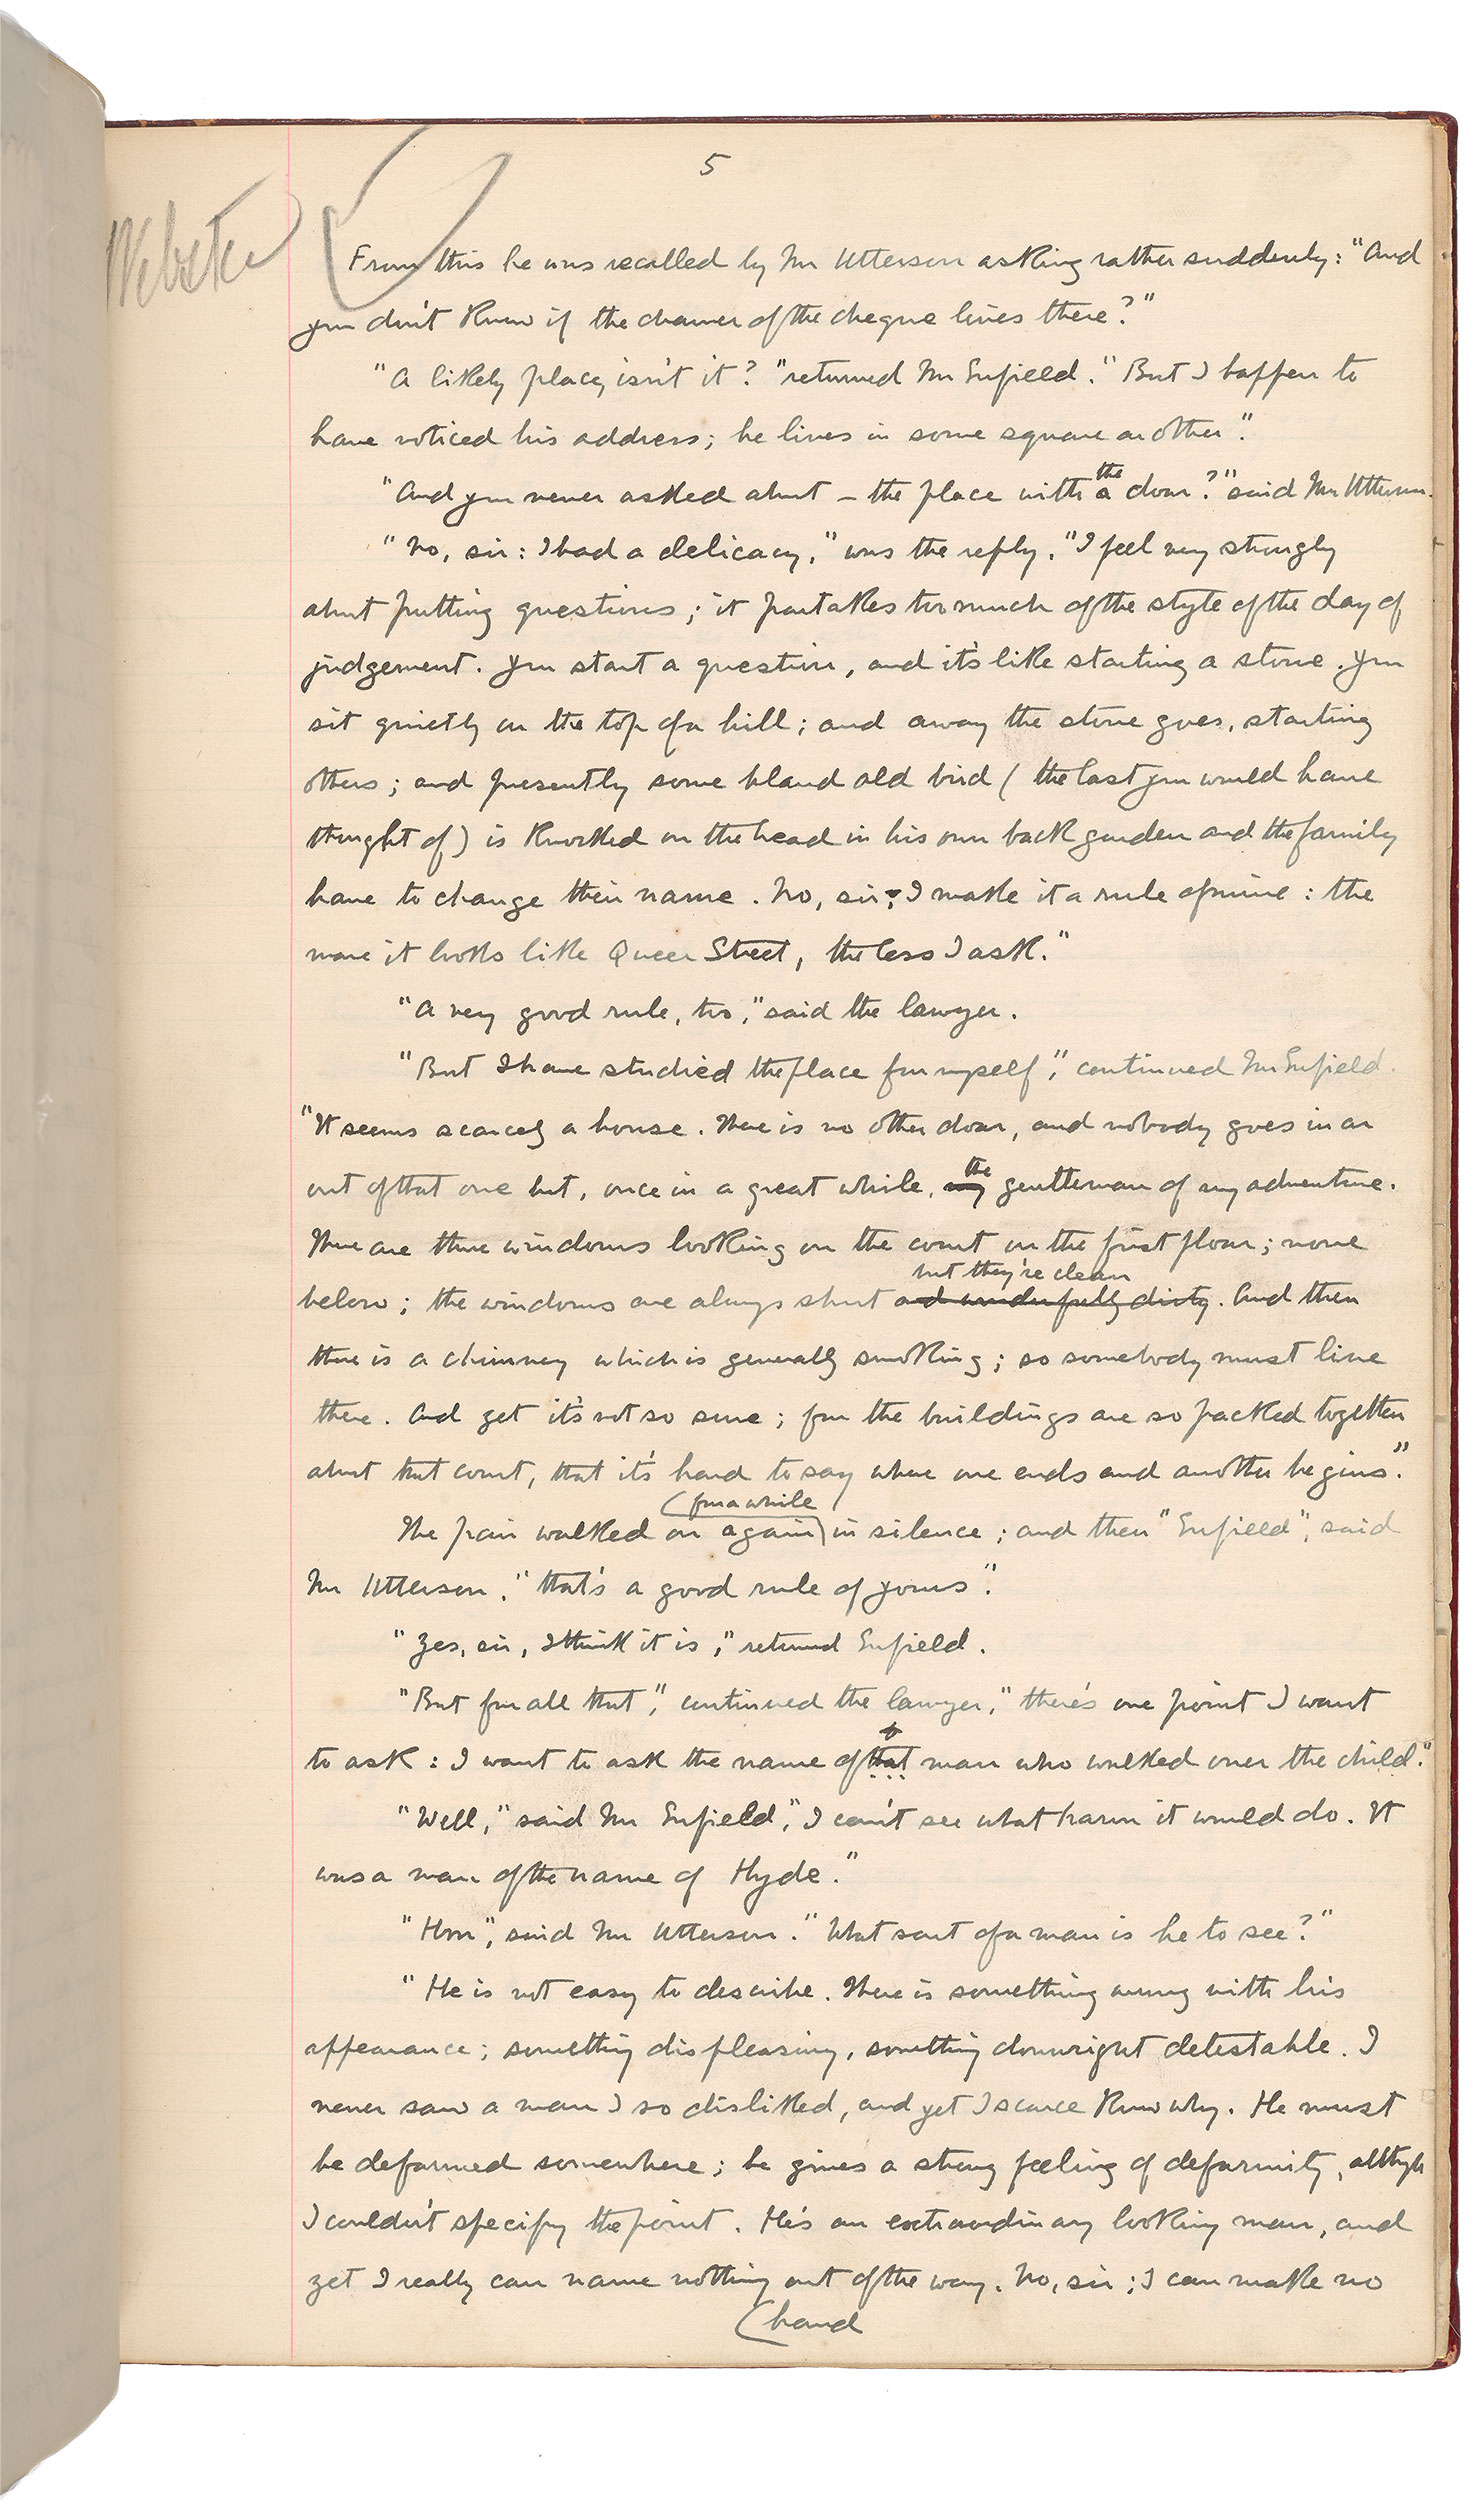 5
Webster
From this he was recalled by Mr Utterson asking rather suddenly: "And
you don't know if the drawer of the cheque lives there?"
"A likely place, isn't it?" returned Mr Enfield. "But I happen to
have noticed his address; he lives in some square or other."
the
"And you never asked about — the place with a door?" said Mr Utterson.
"No, sir: I had a delicacy," was the reply. "I feel very strongly
about putting questions; it partakes too much of the style of the day of
judgement. You start a question, and it's like starting a stone. You
sit quietly on the top of a hill; and away the stone goes, starting
others; and presently some bland old bird (the last you would have
thought of) is knocked on the head in his own back garden and the family
have to change their name. No, sir, I make it a rule of mine: the
more it looks like Queer Street, the less I ask."
"A very good rule, too," said the lawyer.
"But I have studied the place for myself," continued Mr Enfield.
"It seems scarcely a house. There is no other door, and nobody goes in or
the
out of that one but, once in a great while, my gentleman of my adventure.
There are three windows looking on the court on the first floor; none
but they're clean
below; the windows are always shut and wonderfully dirty. And then
there is a chimney which is generally smoking; so somebody must live
there. And yet it's not so sure; for the buildings are so packed together
about that court, that it's hard to say where one ends and another begins."
for a while
The pair walked on again in silence; and then "Enfield", said
Mr Utterson, "that's a good rule of yours".
"Yes, sir, I think it is," returned Enfield.
"But for all that," continued the lawyer, "there's one point I want
to ask: I want to ask the name of that man who walked over the child."
"Well," said Mr Enfield, "I can't see what harm it would do. It
was a man of the name of Hyde."
"Hm", said Mr Utterson. "What sort of a man is he to see?"
"He is not easy to describe. There is something wrong with his
appearance; something displeasing, something downright detestable. I
never saw a man I so disliked, and yet I scarce know why. He must
be deformed somewhere; he gives a strong feeling of deformity, although
I couldn't specify the point. He's an extraordinary looking man, and
yet I really can name nothing out of the way. No, sir; I can make no
hand